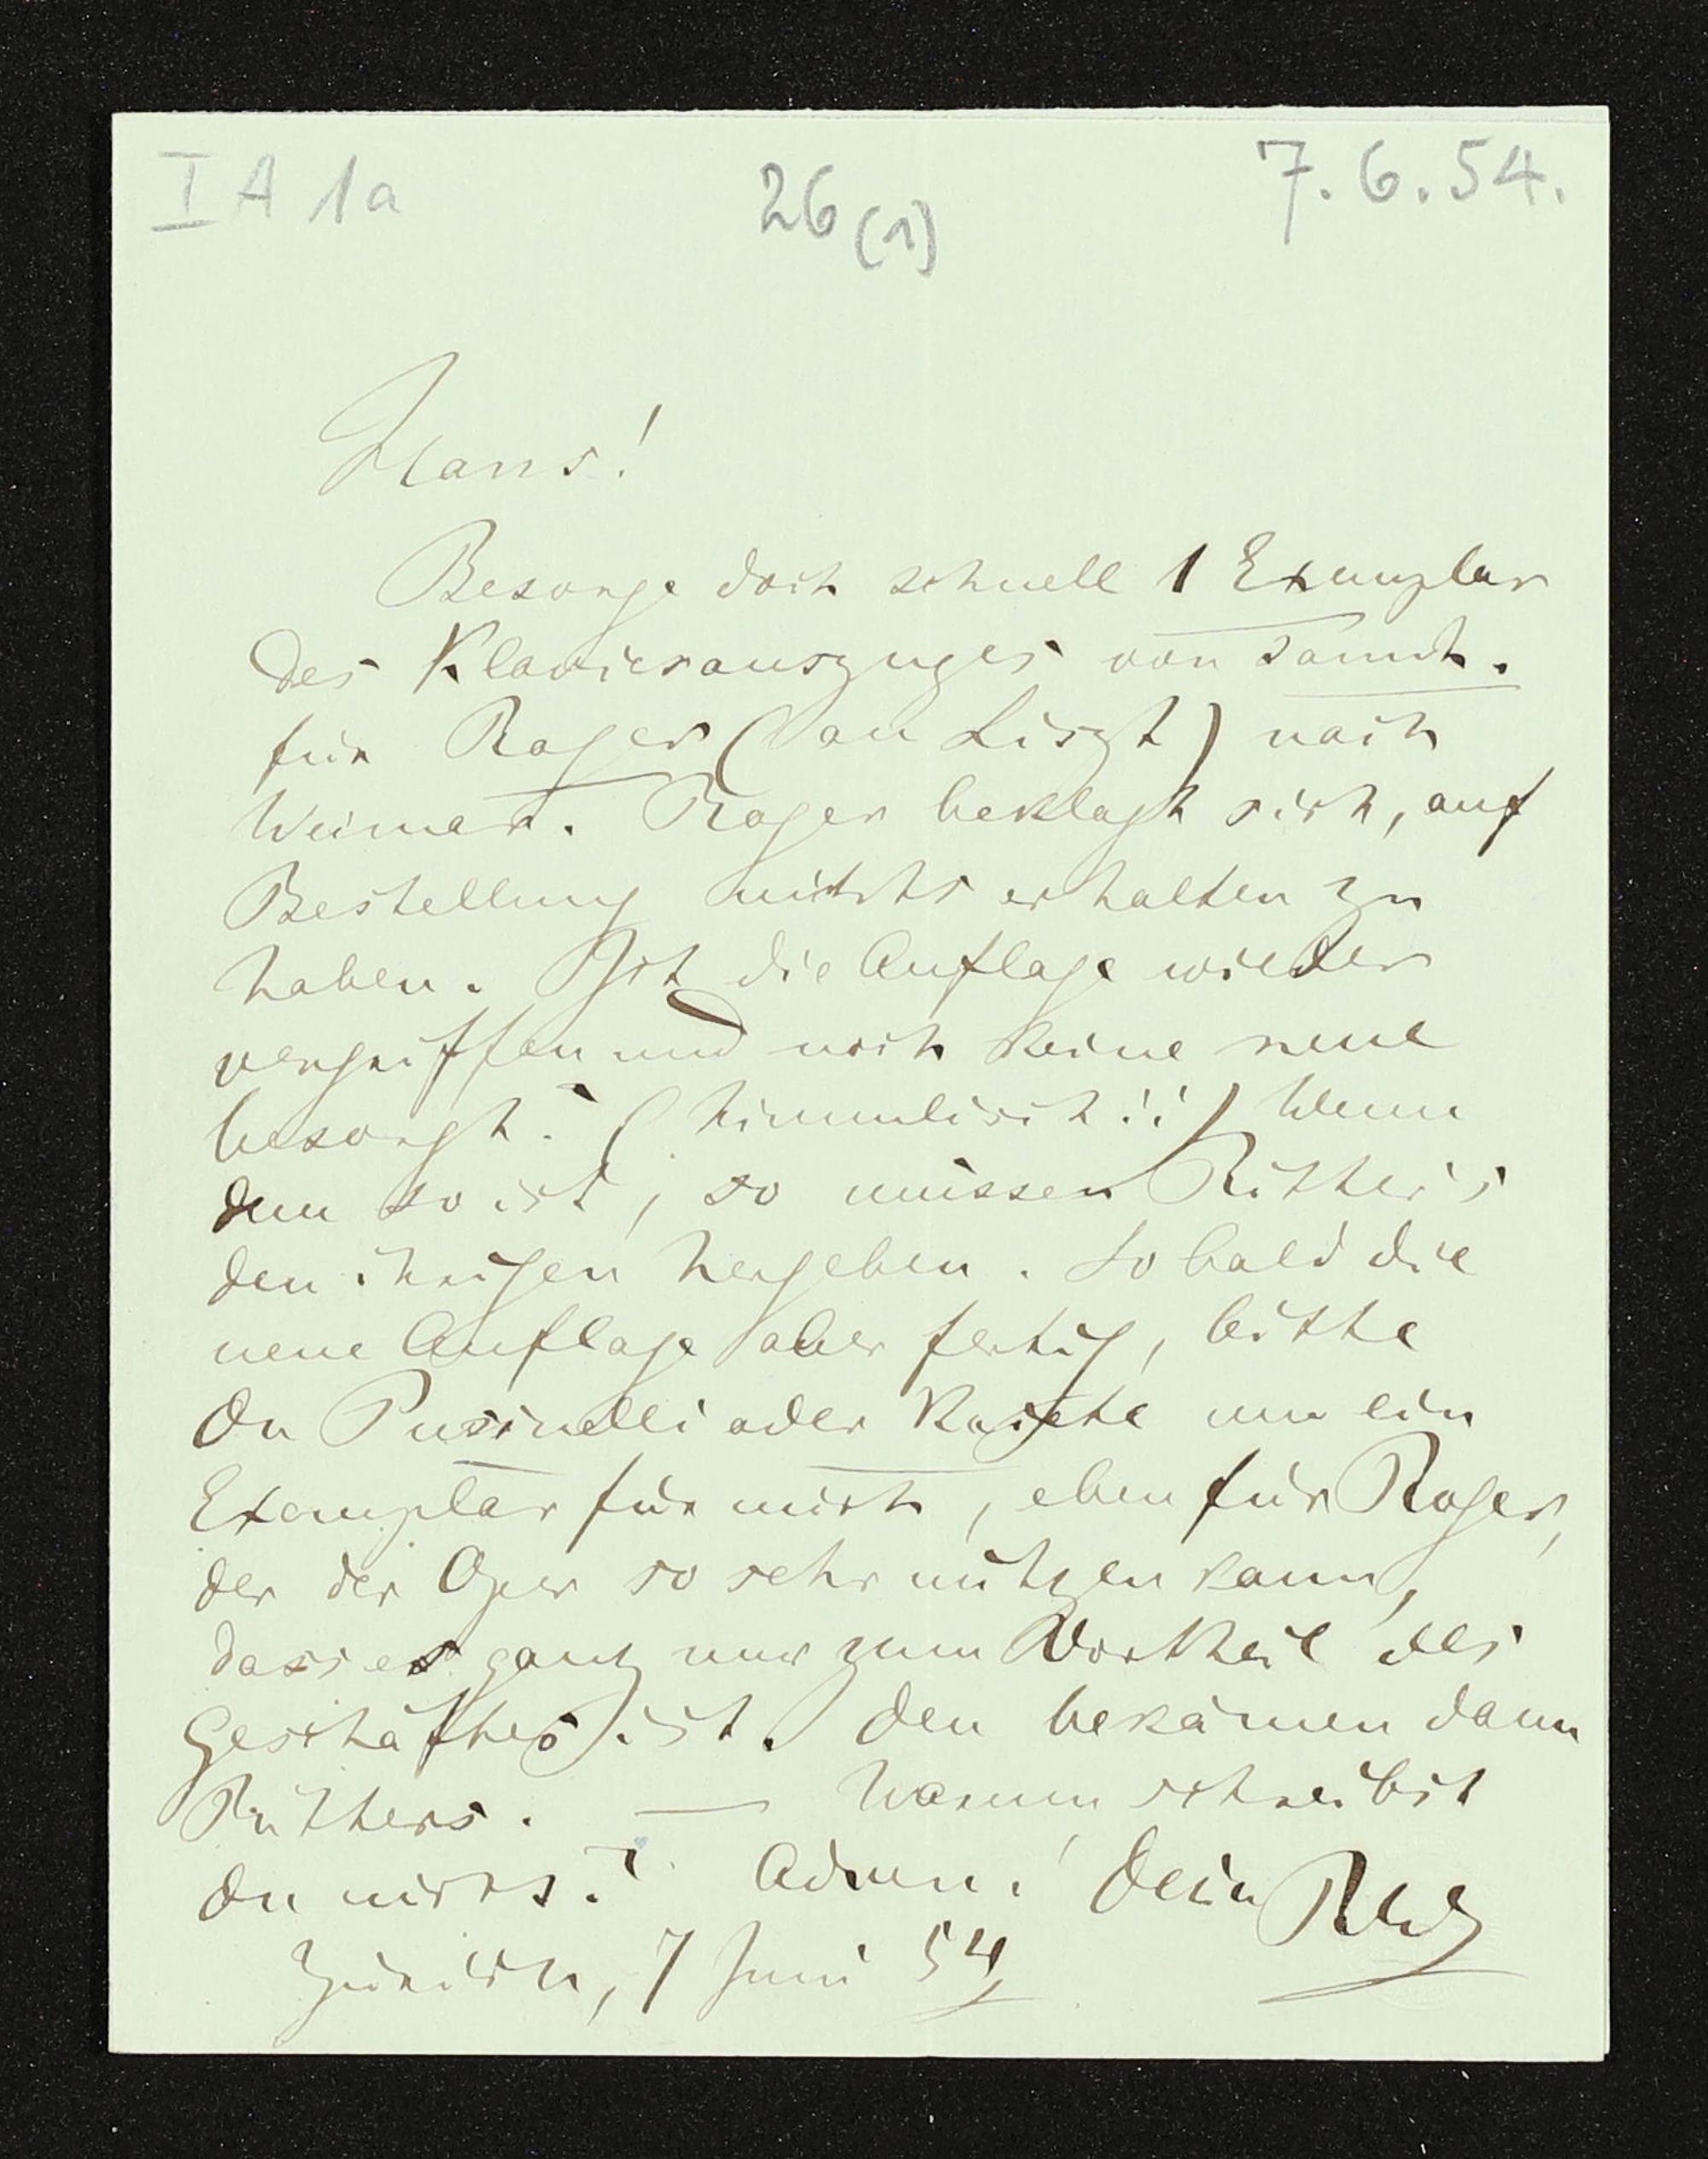 I A 1a 26 (1) 7. 6. 54.
Hans!
Besorge doch schnell 1 Exemplar
des Klavierauszuges von Tannh.
für Roger (an Liszt) nach
Weimar. Roger beklagt sich, auf
Bestellung nichts erhalten zu
haben. Ist die Auflage wieder
vergriffen und noch keine neue
besorgt? (himmlisch!!) Wenn
dem so ist, so müssen Ritter's
den ihrigen hergeben. So bald die
neue Auflage aber fertig, bitte
Du Pusinelli oder Kriete um ein
Exemplar für mich, eben für Roger,
der der Oper so sehr nützen kann,
dass es ganz nur zum Vortheil des
Geschäftes ist. Den bekämen dann
Ritters. — Warum schreibst
Du nichts? Adieu! Dein RW
Zürich, 7 Juni 54